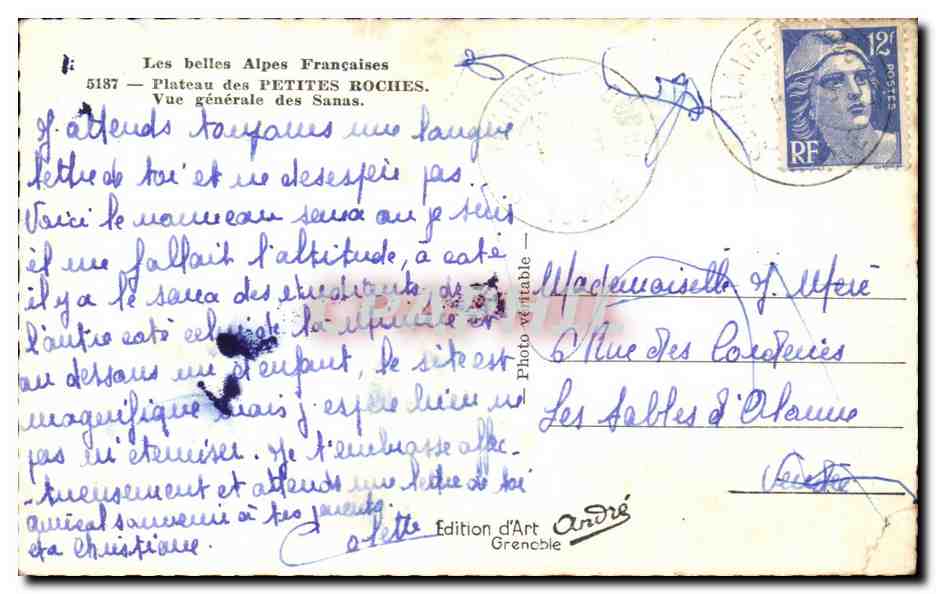 Les belles Alpes Françaises
5187 — Plateau des PETITES ROCHES.
Vue générale des Sanas.
J'attends toujours une longue
lettre de toi et ne desespère pas.
Voici le nouveau sana ou je suis
il me fallait l'altitude, à coté
il y a le sana des etudiants de
l'autre coté celui de la
au dessous un d'enfant, le site est
magnifique mais j'espère bien ne
pas m'eterniser. Je t'embrasse affec-
-tueusement et attends une lettre de toi
amical souvenir à tes parents
et a Christiane.
Colette
Photo véritable
Edition d'Art André
Grenoble
12f
POSTES
RF
Mademoiselle J. Moré
6 Rue des Corderies
Les Sables d'Olonne
Vendée